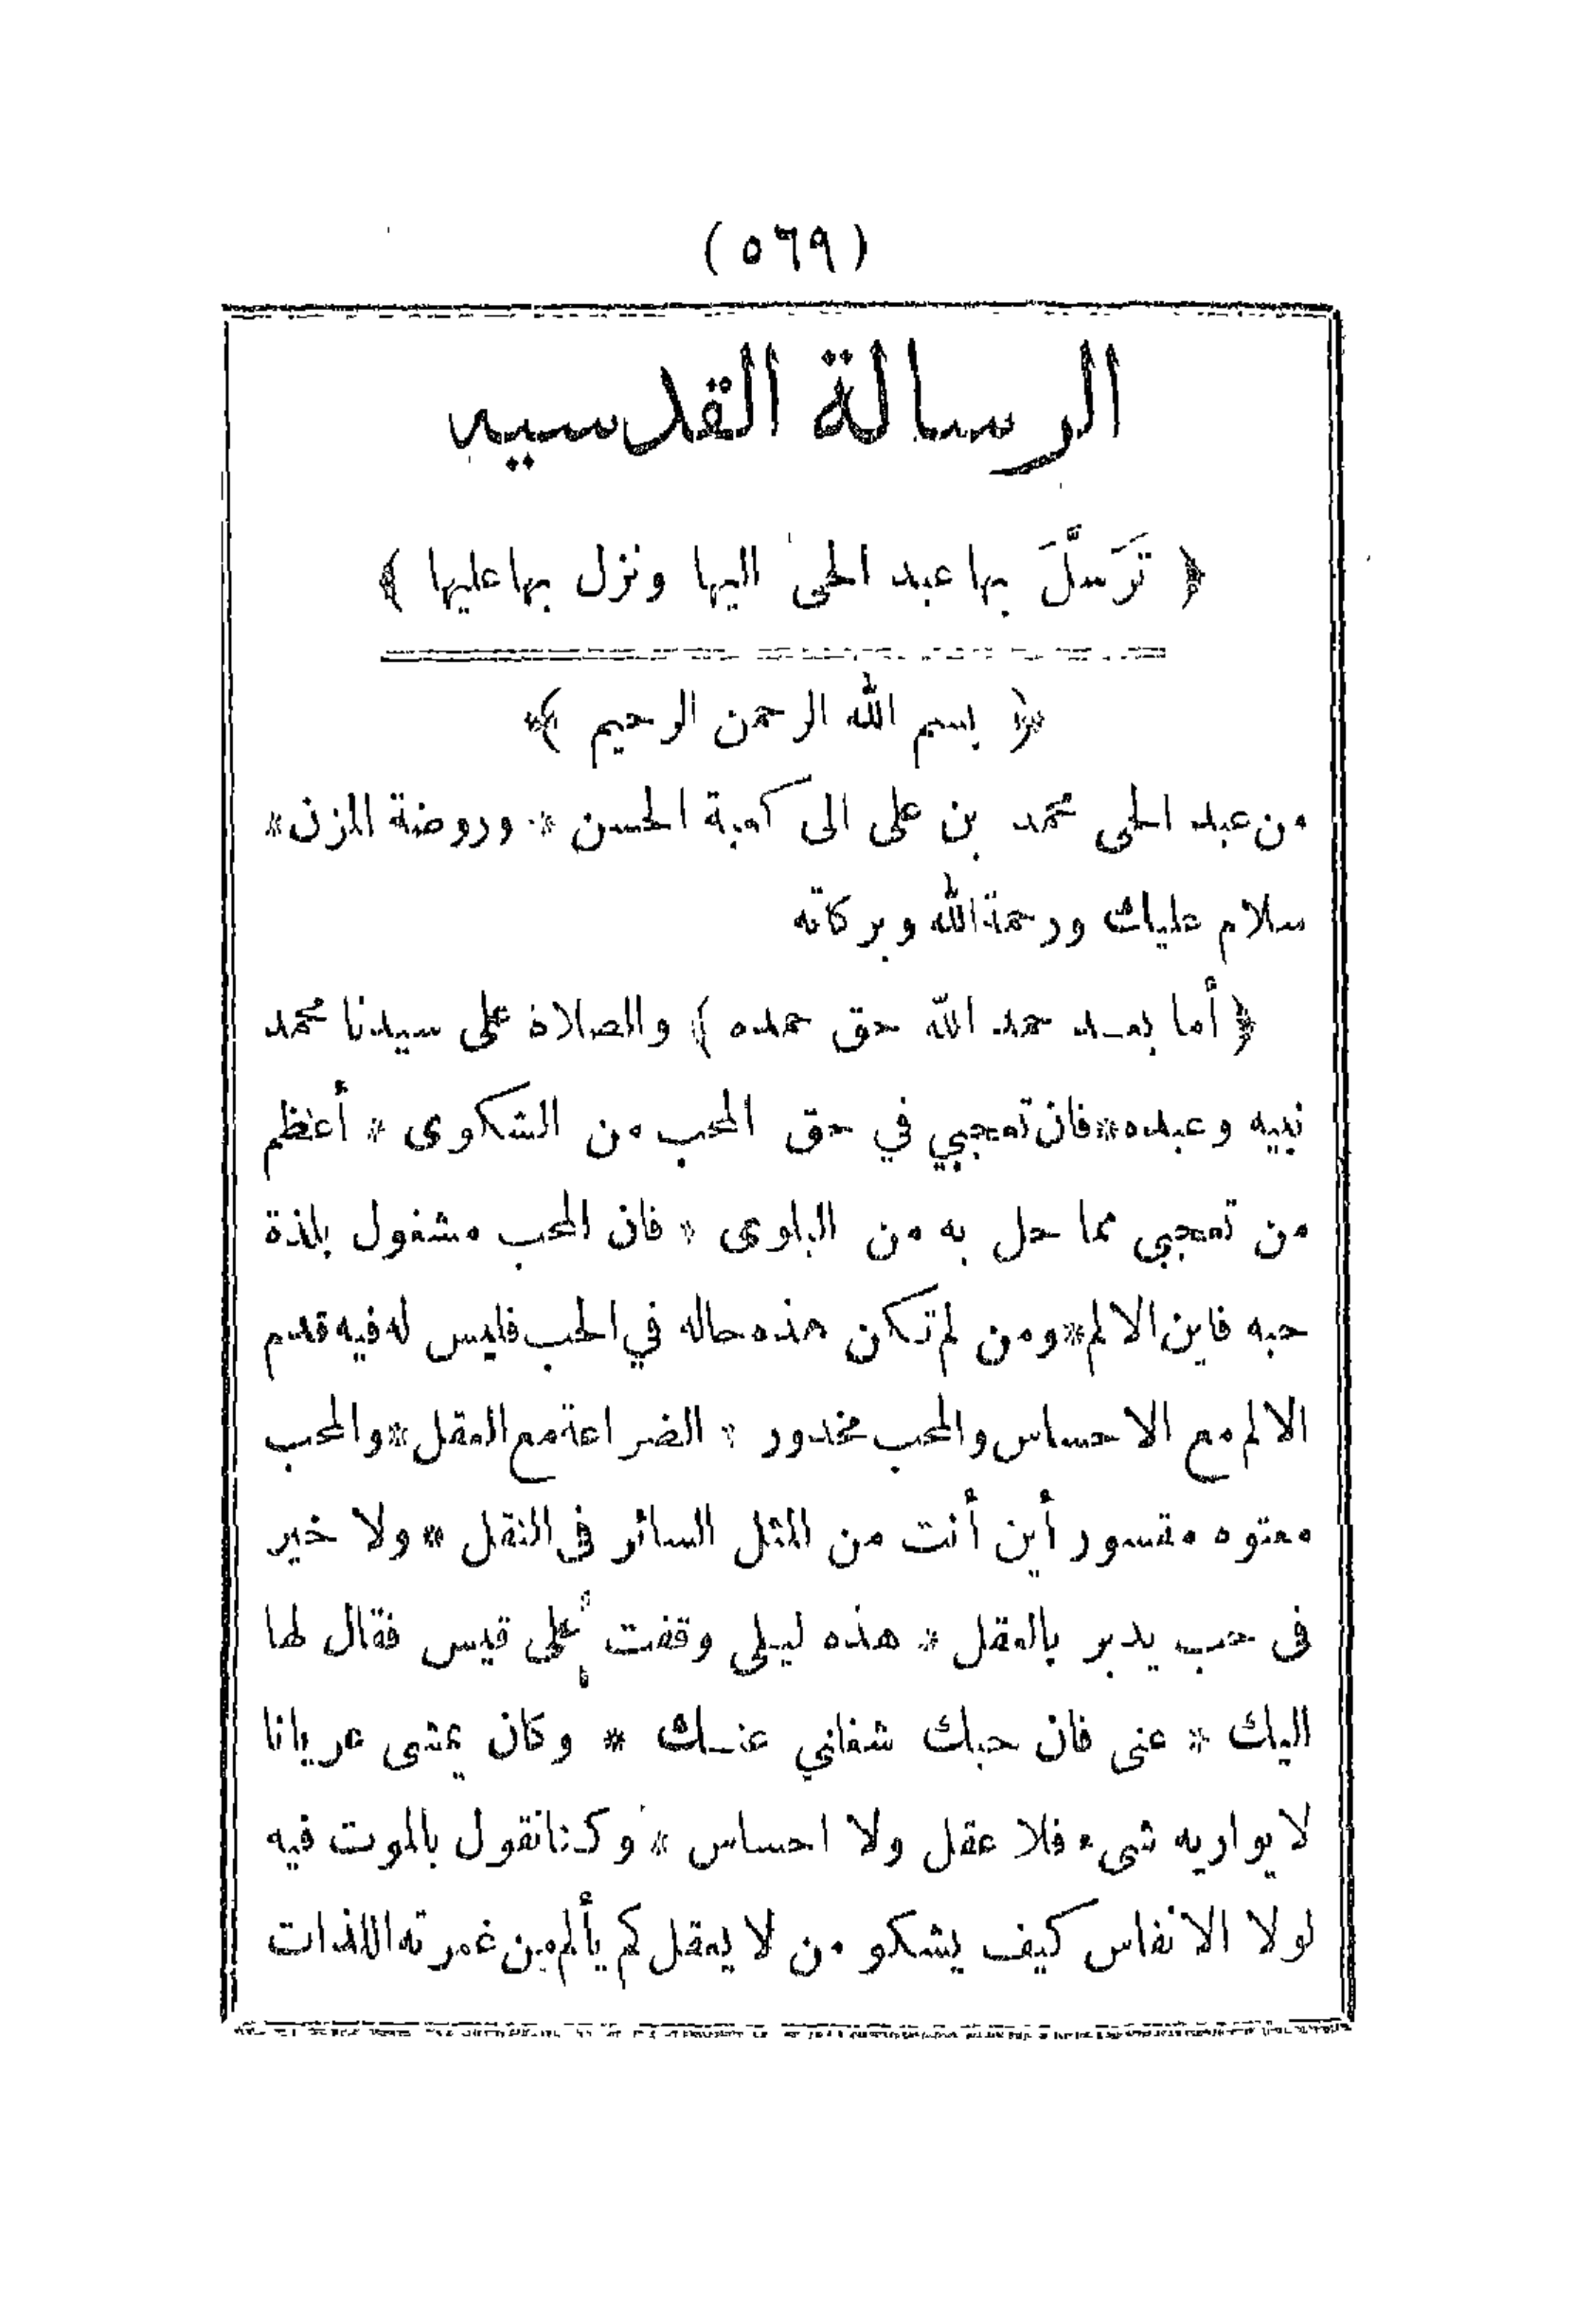 (٥٦٩)
الرسالة القدسيه
﴿ تَرَسَّلَ بها عبد الحى اليها ونزل بها عليها ﴾
﴿ بسم الله الرحمن الرحيم ﴾
من عبد الحى محمد بن على الى كعبة الحسن * وروضة المزن *
سلام عليك ورحمة الله وبركاته
﴿ أما بعد حمد الله حق حمده ﴾ والصلاة على سيدنا محمد
نبيه وعبده * فان تعجبي في حق المحب من الشكوى * أعظم
من تعجبى مما حل به من البلوى * فان المحب مشغول بلذة
حبه فاين الالم * ومن لم تكن هذه حاله في الحب فليس له فيه قدم
الالم مع الاحساس والمحب مخدور * الضراعة مع العقل * والمحب
معتوه مقسور أين أنت من المثل السائر فى النقل * ولا خير
فى حب يدبر بالعقل * هذه ليلى وقفت على قيس فقال لها
اليك * عنى فان حبك شغاني عنك * وكان يمشى عريانا
لا يواريه شىء فلا عقل ولا احساس * وكنا نقول بالموت فيه
لولا الانفاس كيف يشكو من لا يعقل كم يألم من غمرته اللذات